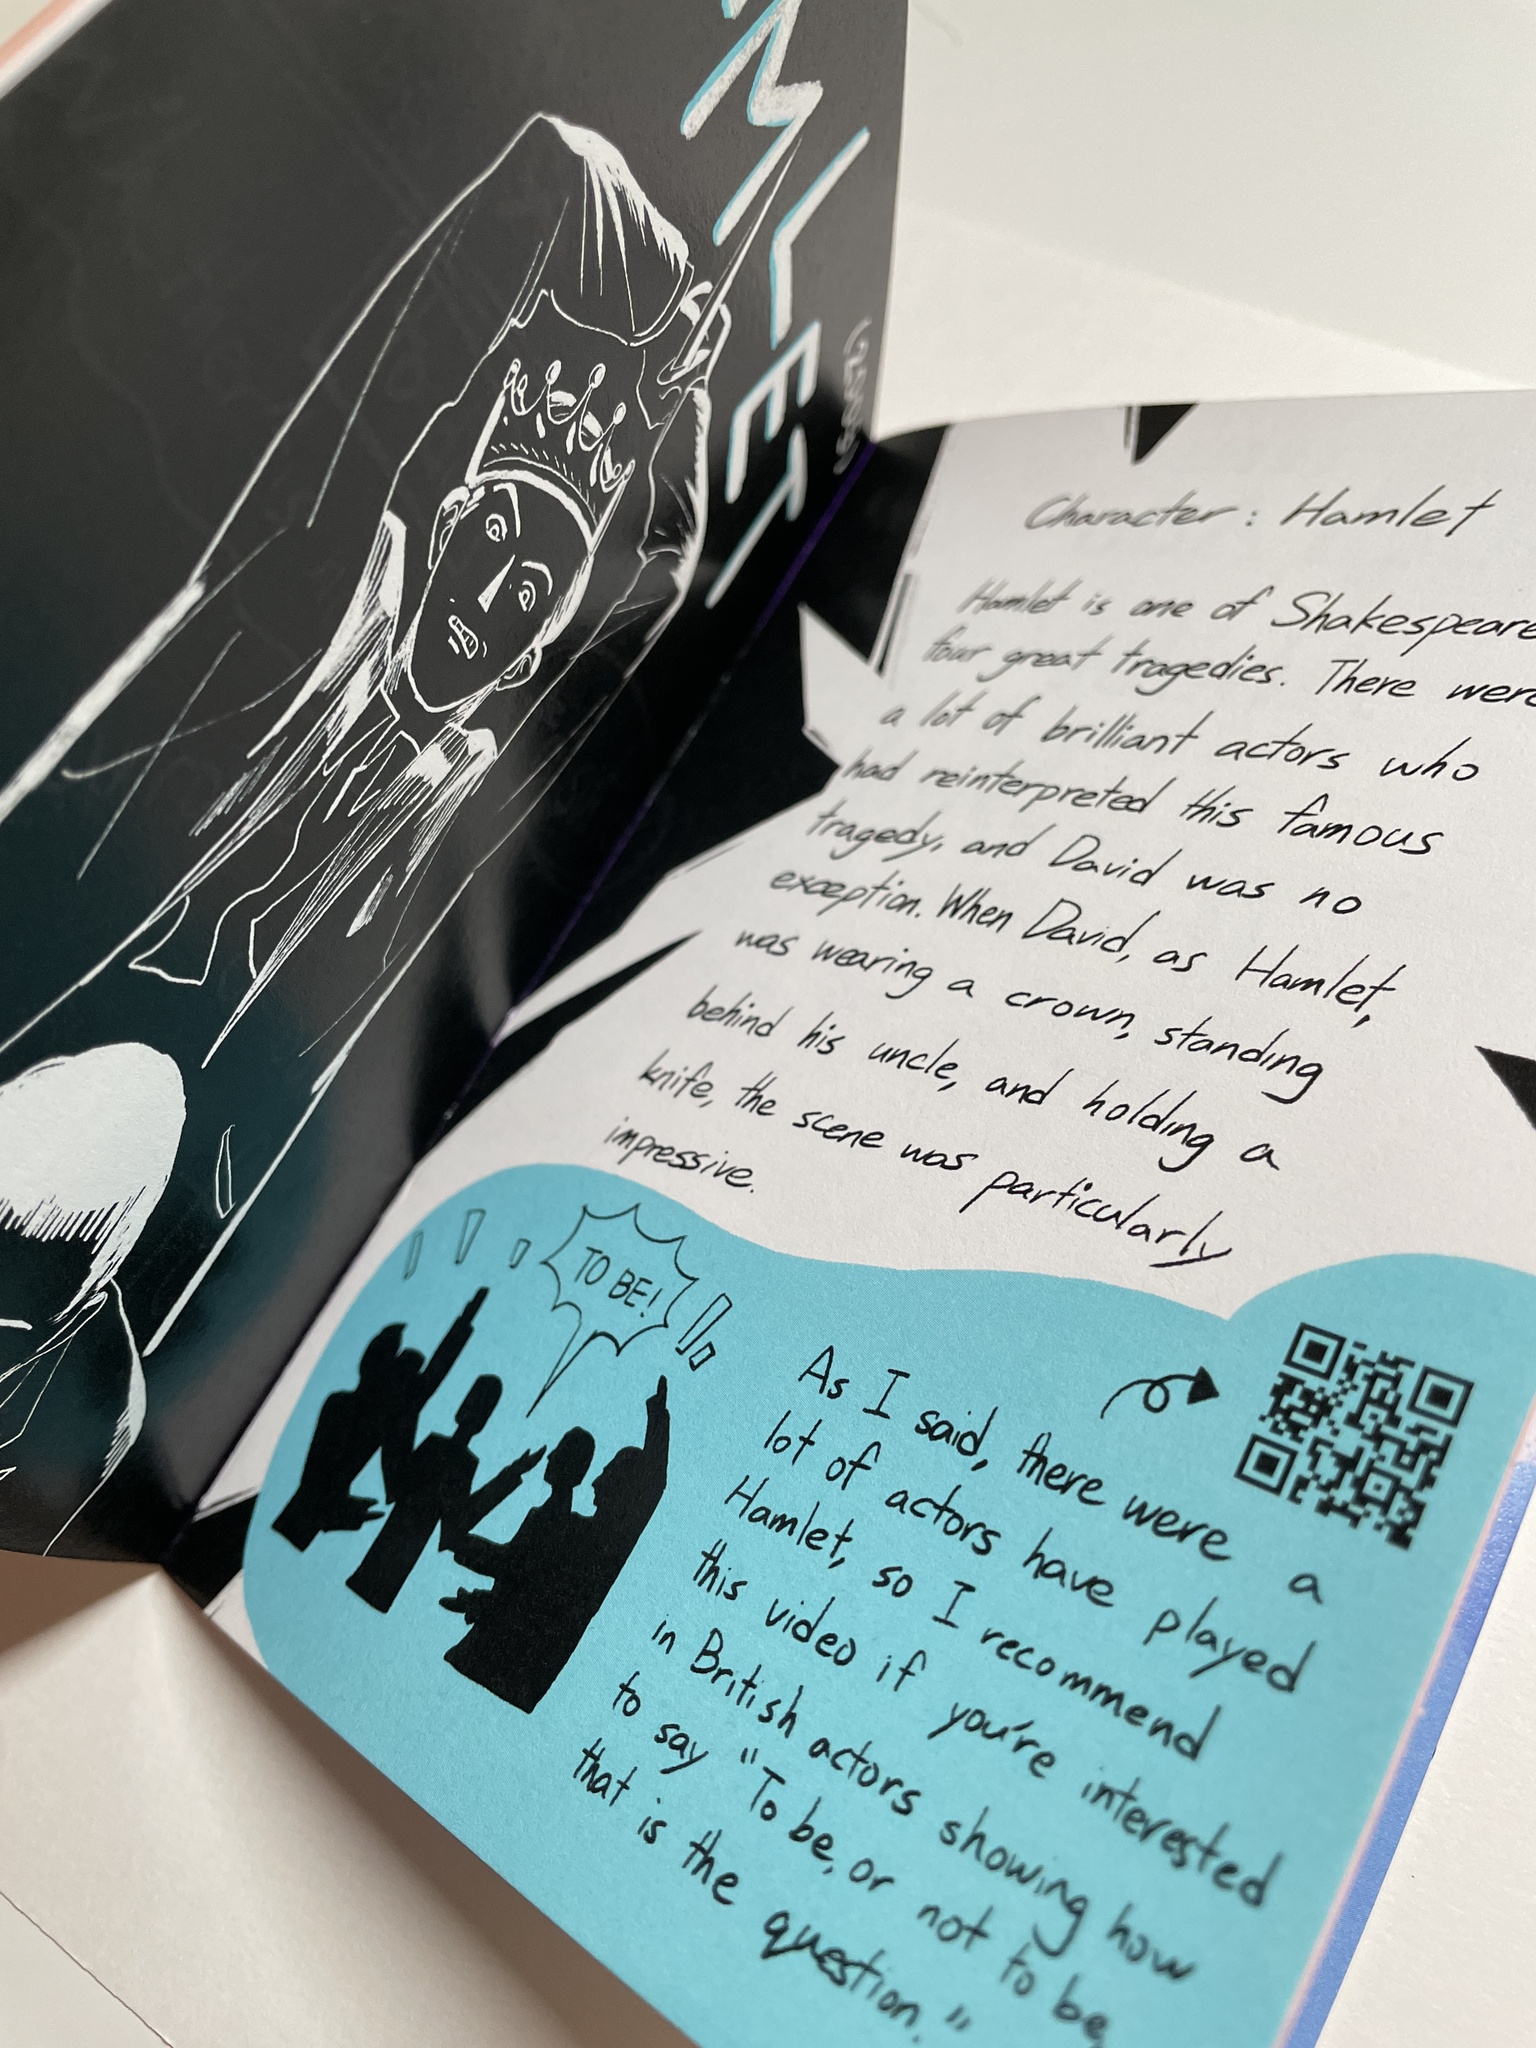 MLET
Character : Hamlet
Hamlet is one of Shakespeare
four great tragedies. There were
a lot of brilliant actors who
had reinterpreted this famous
tragedy, and David was no
exception. When David, as Hamlet,
was wearing a crown, standing
behind his uncle, and holding a
knife, the scene was particularly
impressive.
TO BE!
As I said, there were a
lot of actors have played
Hamlet, so I recommend
this video if you're interested
in British actors showing how
to say "To be, or not to be,
that is the question."